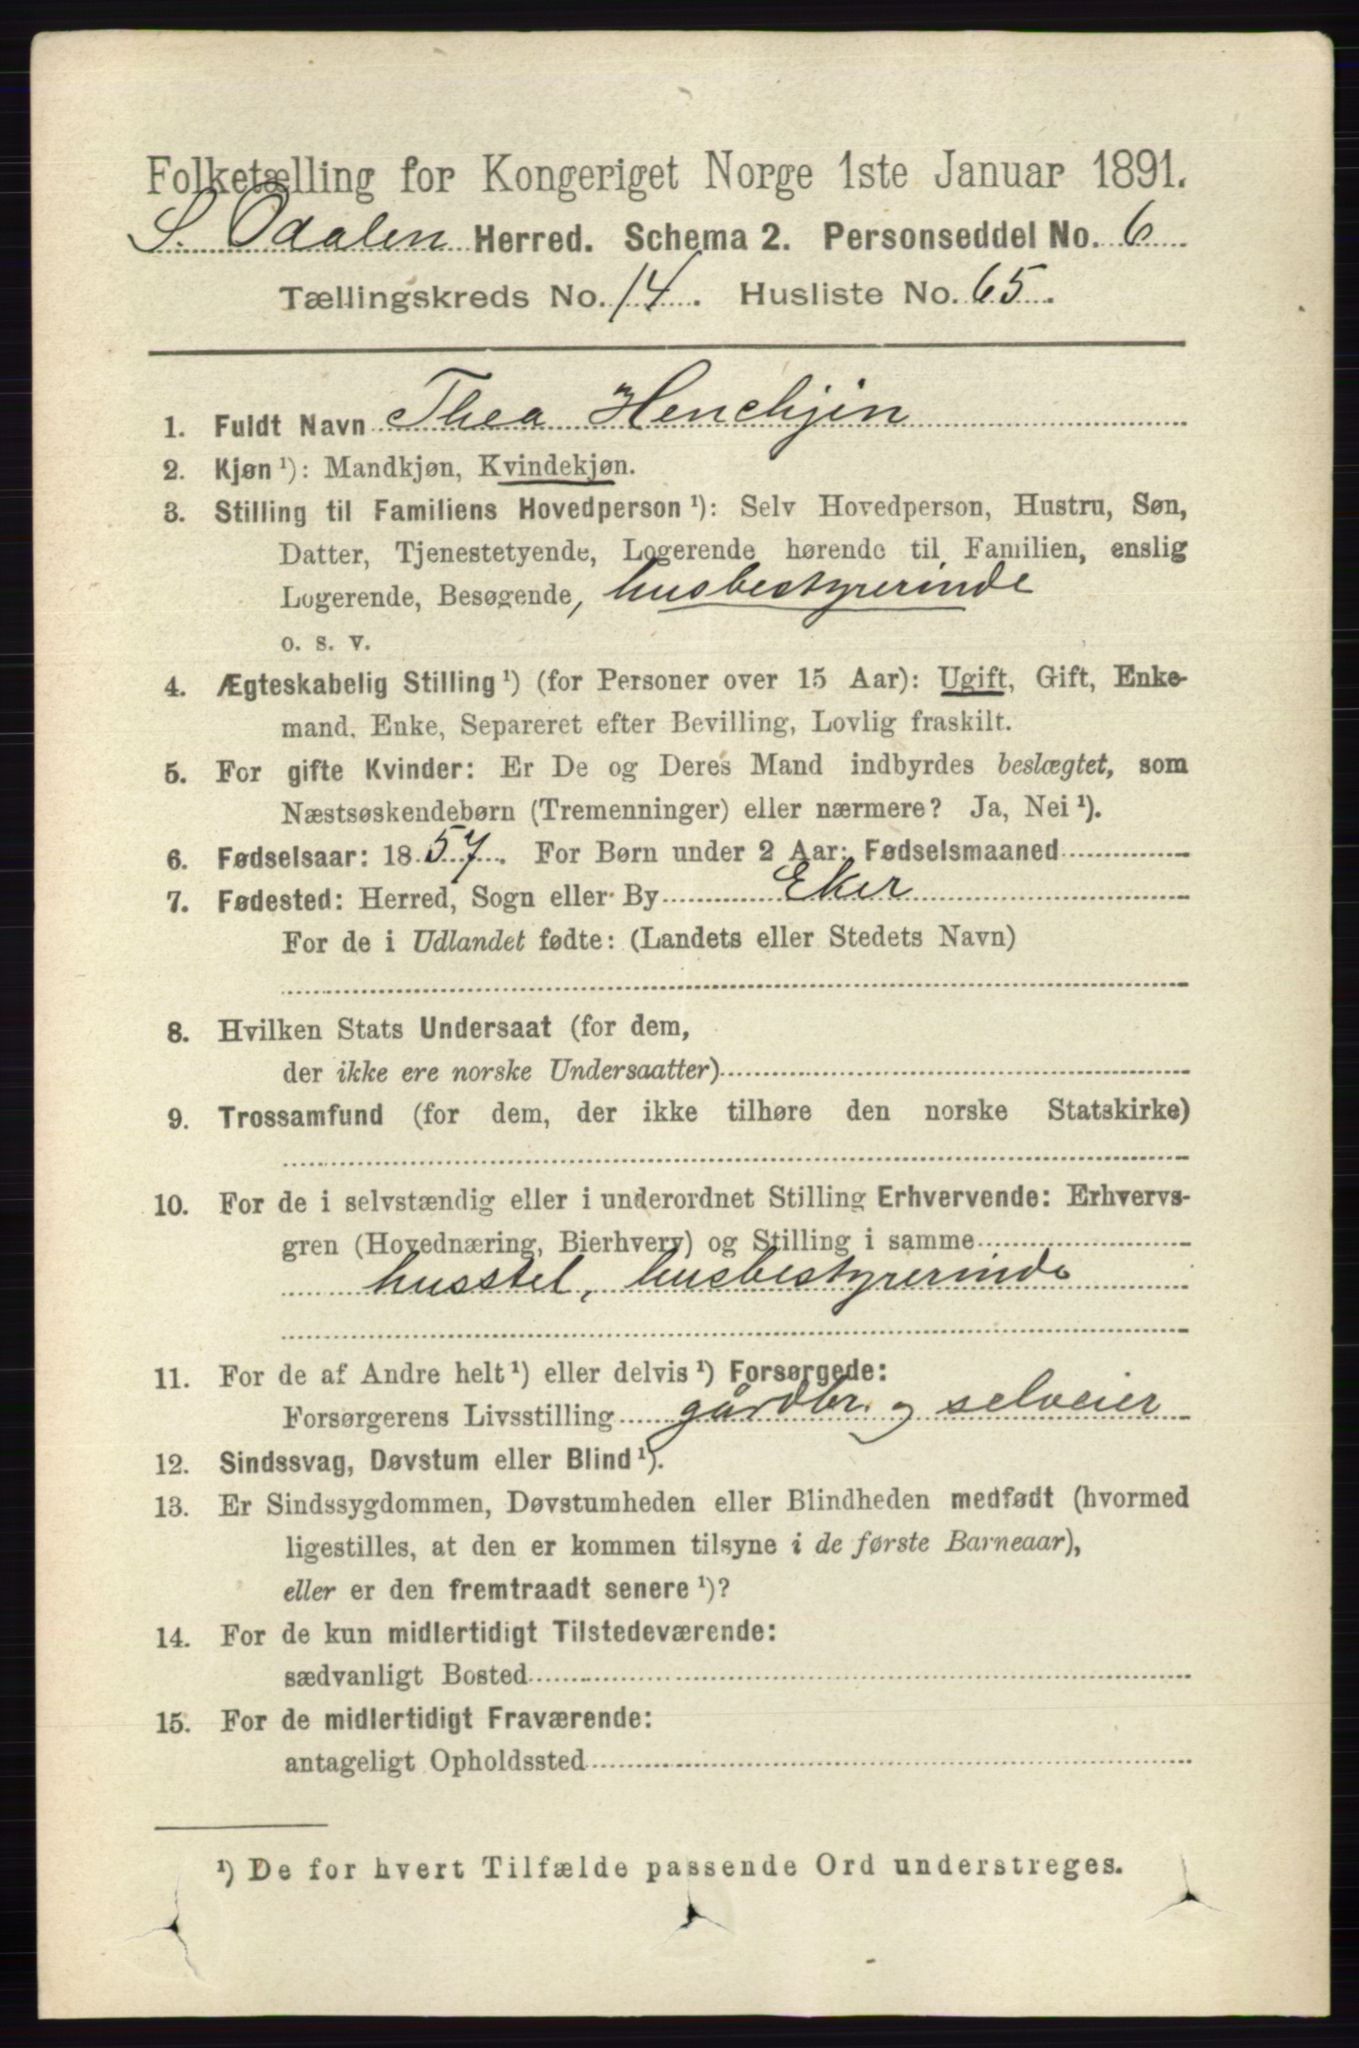 Folketælling for Kongeriget Norge 1ste Januar 1891.
S. Odalen Herred. Schema 2. Personseddel No. 6
Tællingskreds No. 14. Husliste No. 65.
1. Fuldt Navn Thea Henchjin
2. Kjøn ¹): Mandkjøn, Kvindekjøn.
3. Stilling til Familiens Hovedperson ¹): Selv Hovedperson, Hustru, Søn,
Datter, Tjenestetyende, Logerende hørende til Familien, enslig
Logerende, Besøgende, husbestyrerinde
o. s. v.
4. Ægteskabelig Stilling ¹) (for Personer over 15 Aar): Ugift, Gift, Enke-
mand, Enke, Separeret efter Bevilling, Lovlig fraskilt.
5. For gifte Kvinder: Er De og Deres Mand indbyrdes beslægtet, som
Næstsøskendebørn (Tremenninger) eller nærmere? Ja, Nei ¹).
6. Fødselsaar: 1857. For Børn under 2 Aar: Fødselsmaaned
7. Fødested: Herred, Sogn eller By Eker
For de i Udlandet fødte: (Landets eller Stedets Navn)
8. Hvilken Stats Undersaat (for dem,
der ikke ere norske Undersaatter)
9. Trossamfund (for dem, der ikke tilhøre den norske Statskirke)
10. For de i selvstændig eller i underordnet Stilling Erhvervende: Erhvervs-
gren (Hovednæring, Bierhverv) og Stilling i samme
husstel, husbestyrerinde
11. For de af Andre helt ¹) eller delvis ¹) Forsørgede:
Forsørgerens Livsstilling gårdbr. og selveier
12. Sindssvag, Døvstum eller Blind ¹).
13. Er Sindssygdommen, Døvstumheden eller Blindheden medfødt (hvormed
ligestilles, at den er kommen tilsyne i de første Barneaar),
eller er den fremtraadt senere ¹)?
14. For de kun midlertidigt Tilstedeværende:
sædvanligt Bosted
15. For de midlertidigt Fraværende:
antageligt Opholdssted
¹) De for hvert Tilfælde passende Ord understreges.